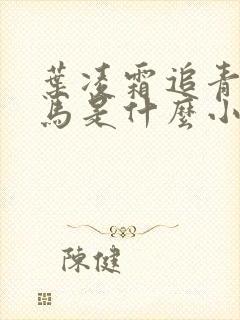 葉凌霜追青
馬是什麼小
陳健